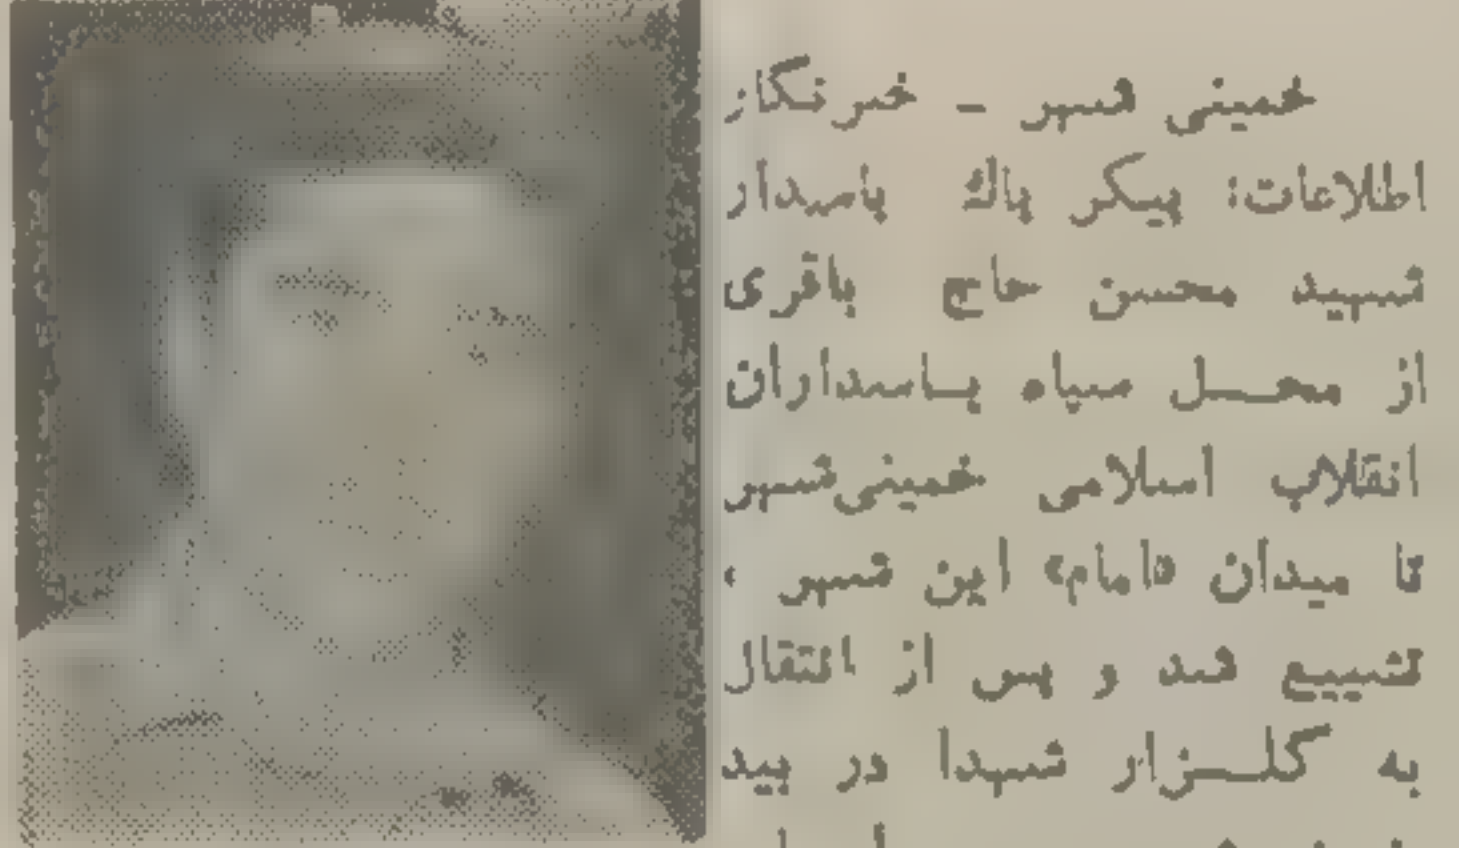 خمینی شهر – خبرنگار
اطلاعات: پیکر پاک پاسدار
شهید محسن حاج باقری
از محل سپاه پاسداران
انقلاب اسلامی خمینی‌شهر
تا میدان «امام» این شهر ،
تشییع شد و پس از انتقال
به گلزار شهدا در بید